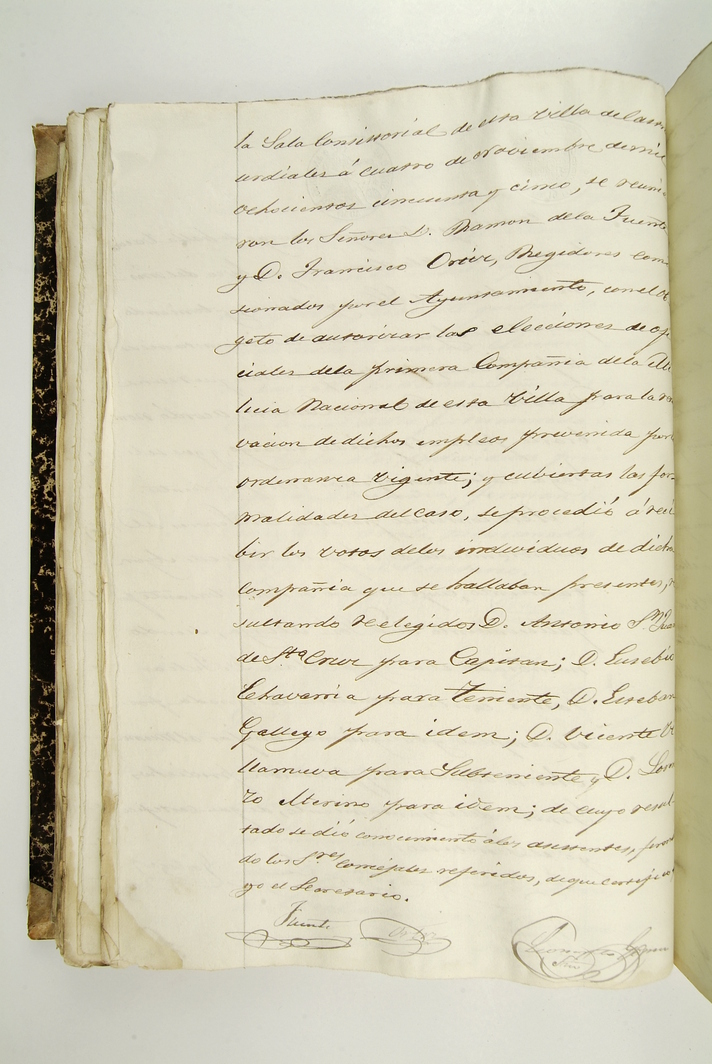 la Sala Consistorial de esta Villa de Castro
urdiales á cuatro de Noviembre de mil
ochocientos cincuenta y cinco, se reunie
ron los Señores D. Ramon de la Fuente
y D. Francisco Orive, Regidores comi
sionados por el Ayuntamiento, con el ob
geto de autorizar las elecciones de ofi
ciales de la primera Compañia de la Mi
licia Nacional de esta Villa para la re
vacion de dichos empleos prevenida por
ordenanza vigente; y cubiertas las for-
malidades del caso, se procedió á reci
bir los votos de los individuos de dicha
compañia que se hallaban presentes, re
sultando reelegidos D. Antonio Sn. Juan
de Sta. Cruz para Capitan; D. Eusebio
Echavarria para Teniente, D. Esteban
Gallego para idem; D. Vicente Vi
llanueva para Subteniente y D. Loren
zo Merino para idem; de cuyo resul-
tado se dió conocimiento á los asistentes, firman
do los Sres. concejales referidos, de que certifico
yo el Secretario.
Fuente Orive
Srio